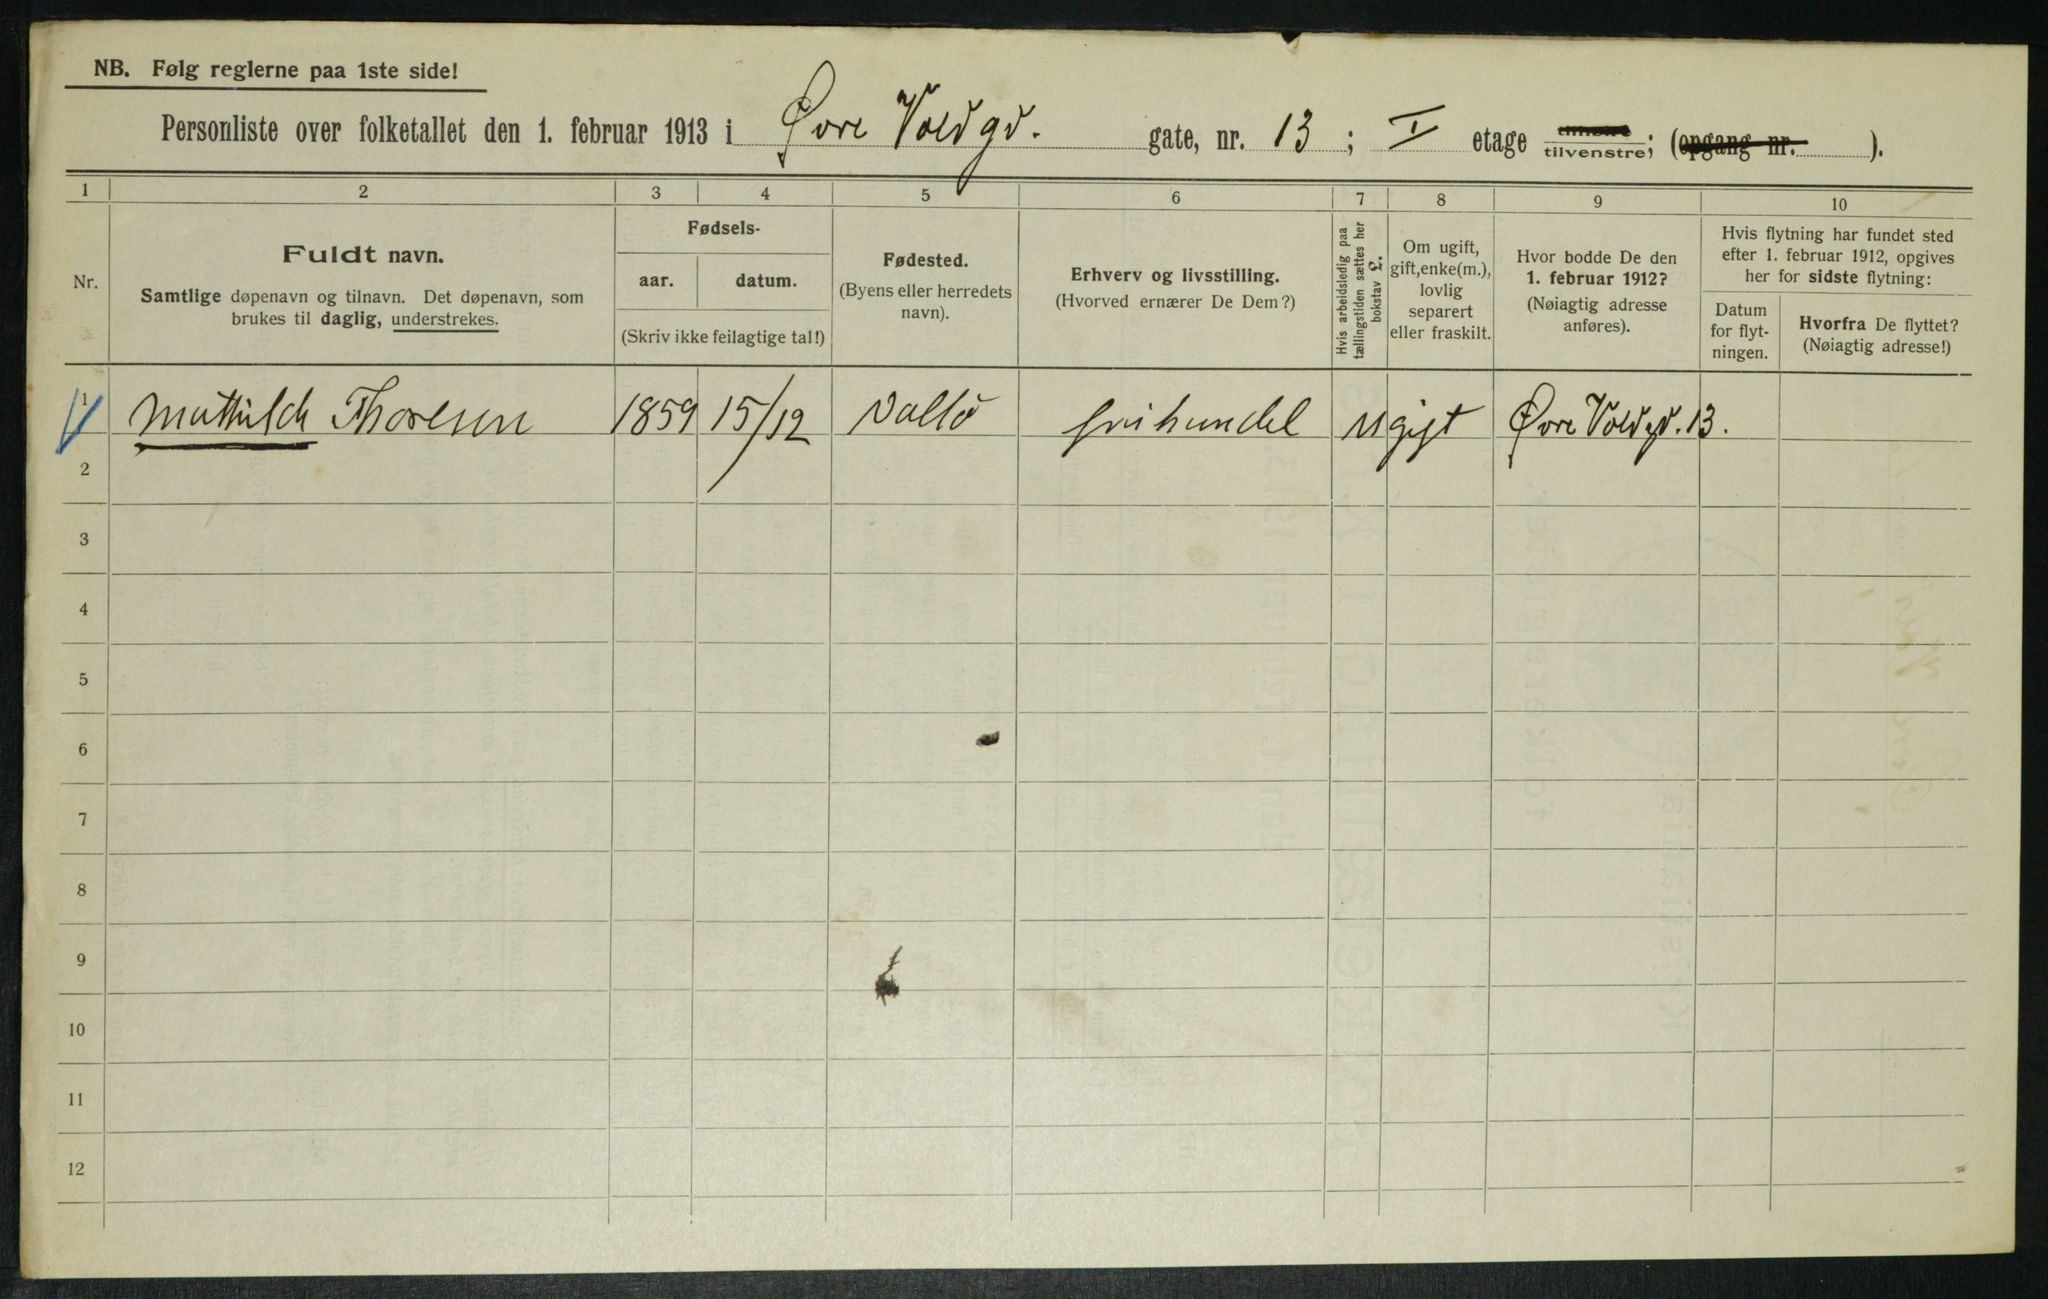 NB. Følg reglerne paa 1ste side!
Personliste over folketallet den 1. februar 1913 i Øvre Voldgd. gate, nr. 13; I etage tilvenstre; (opgang nr. ).
1 2 3 4 5 6 7 8 9 10
Nr.
Fuldt navn.
Samtlige døpenavn og tilnavn. Det døpenavn, som
brukes til daglig, understrekes.
Fødsels-
aar. datum.
(Skriv ikke feilagtige tal!)
Fødested.
(Byens eller herredets
navn).
Erhverv og livsstilling.
(Hvorved ernærer De Dem?)
Hvis arbeidsledig paa
tællingstiden sættes her
bokstav L.
Om ugift,
gift, enke(m.),
lovlig
separert
eller fraskilt.
Hvor bodde De den
1. februar 1912?
(Nøiagtig adresse
anføres).
Hvis flytning har fundet sted
efter 1. februar 1912, opgives
her for sidste flytning:
Datum
for flyt-
ningen.
Hvorfra De flyttet?
(Nøiagtig adresse!)
1 Mathilde Thoresen 1859 15/12 Vallø ugift Øvre Voldgd. 13.
2
3
4
5
6
7
8
9
10
11
12